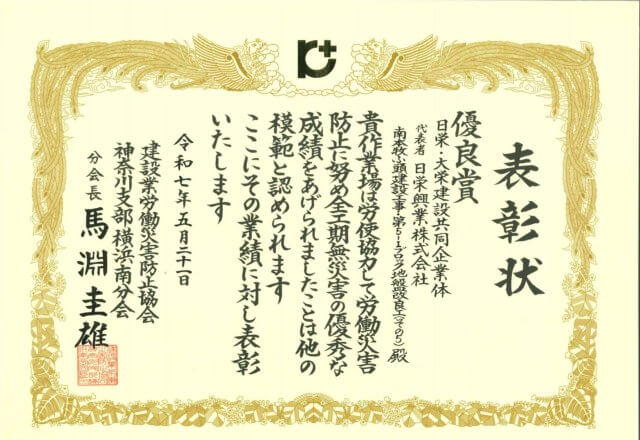 表彰状
優良賞
日栄・大栄建設共同企業体
代表者 日栄興業株式会社
南本牧ふ頭建設工事・第5-1ブロック地盤改良工(その5) 殿
貴作業場は労使協力して労働災害
防止に努め全工期無災害の優秀な
成績をあげられましたことは他の
模範と認められます
ここにその業績に対し表彰
いたします
令和七年五月二十一日
建設業労働災害防止協会
神奈川支部横浜南分会
分会長 馬淵圭雄